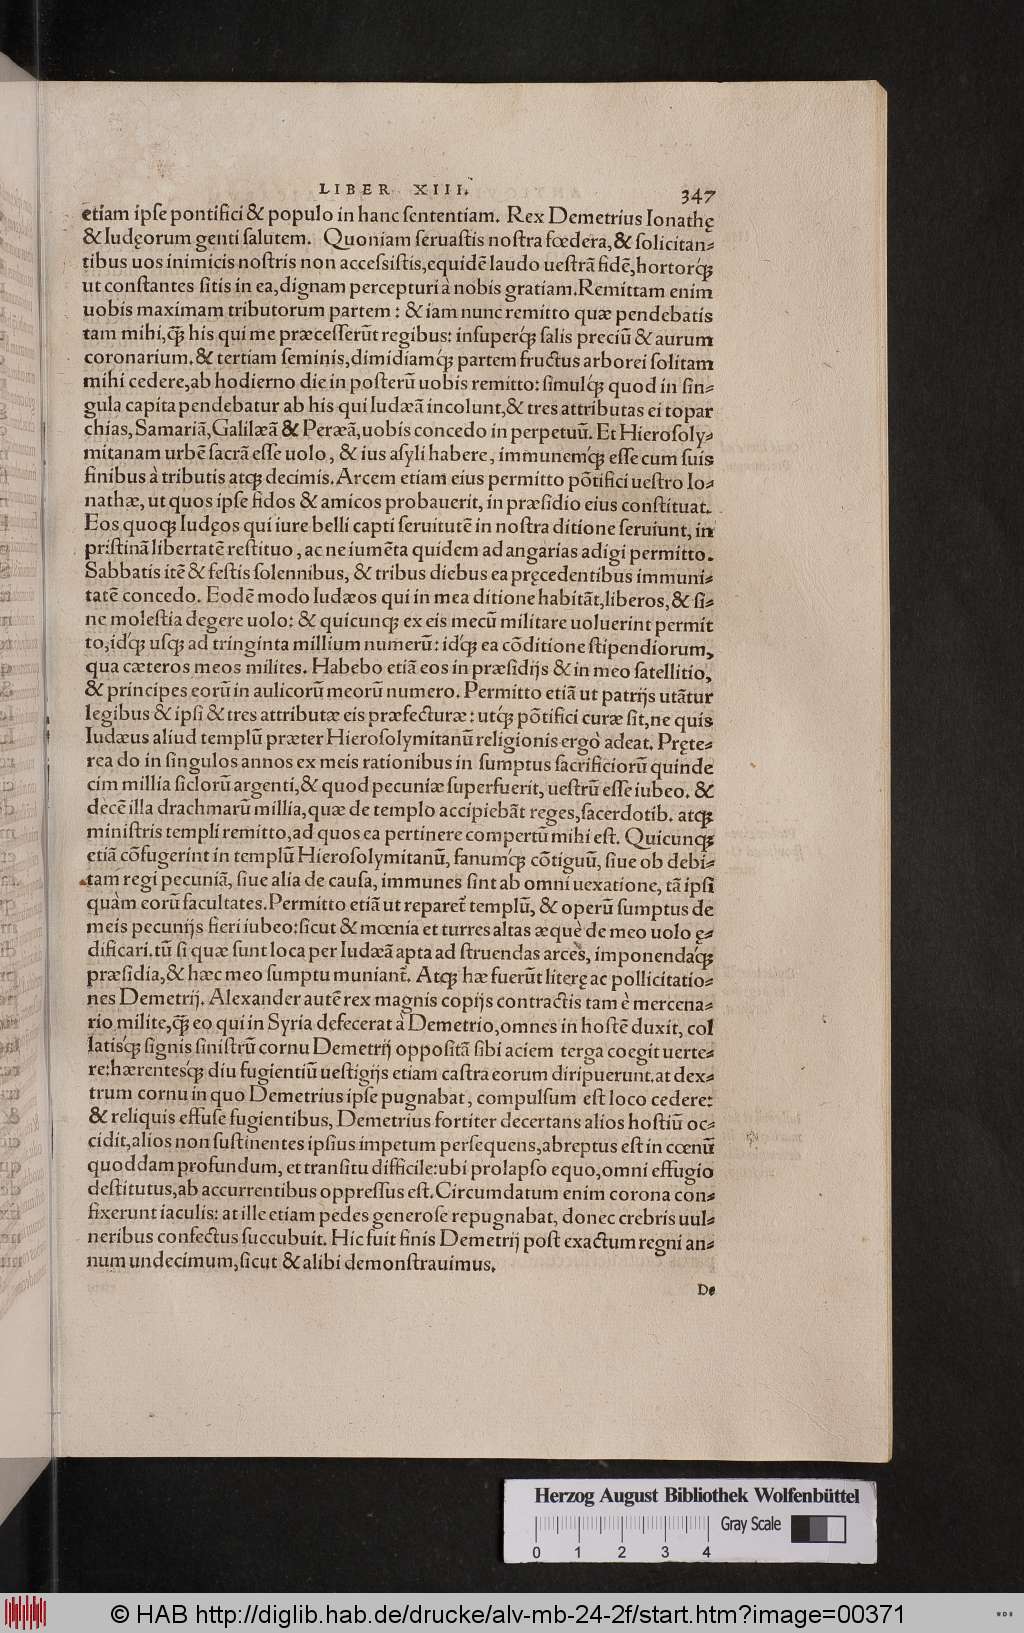 LIBER XIII. 347
etiam ipse pontifici & populo in hanc sententiam. Rex Demetrius Ionathę
& Iudęorum genti salutem. Quoniam seruastis nostra fœdera, & solicitan-
tibus uos inimicis nostris non accessistis, equidē laudo uestrā fidē, hortorq́;
ut constantes sitis in ea, dignam percepturi à nobis gratiam. Remittam enim
uobis maximam tributorum partem: & iam nunc remitto quæ pendebatis
tam mihi, q̃; his qui me præcesserūt regibus: insuperq́; salis preciū & aurum
coronarium. & tertiam seminis, dimidiamq́; partem fructus arborei solitam
mihi cedere, ab hodierno die in posterū uobis remitto: simulq́; quod in sin-
gula capita pendebatur ab his qui Iudæā incolunt, & tres attributas ei topar
chias, Samariā, Galilæā & Peræā, uobis concedo in perpetuū. Et Hierosoly-
mitanam urbē sacrā esse uolo, & ius asyli habere, immunemq́; esse cum suis
finibus à tributis atq; decimis. Arcem etiam eius permitto pōtifici uestro Io-
nathæ, ut quos ipse fidos & amicos probauerit, in præsidio eius constituat.
Eos quoq; Iudęos qui iure belli capti seruitutē in nostra ditione seruiunt, in
pristinā libertatē restituo, ac ne iumēta quidem ad angarias adigi permitto.
Sabbatis itē & festis solennibus, & tribus diebus ea pręcedentibus immuni-
tatē concedo. Eodē modo Iudæos qui in mea ditione habitāt, liberos, & si-
ne molestia degere uolo: & quicunq; ex eis mecū militare uoluerint permit
to, idq́; usq; ad tringinta millium numerū: idq́; ea cōditione stipendiorum,
qua cæteros meos milites. Habebo etiā eos in præsidijs & in meo satellitio,
& principes eorū in aulicorū meorū numero. Permitto etiā ut patrijs utātur
legibus & ipsi & tres attributæ eis præfecturæ: utq́; pōtifici curæ sit, ne quis
Iudæus aliud templū præter Hierosolymitanū religionis ergò adeat. Pręte-
rea do in singulos annos ex meis rationibus in sumptus sacrificiorū quinde
cim millia siclorū argenti, & quod pecuniæ superfuerit, uestrū esse iubeo. &
decē illa drachmarū millia, quæ de templo accipiebāt reges, sacerdotib. atq;
ministris templi remitto, ad quos ea pertinere compertū mihi est. Quicunq;
etiā cōfugerint in templū Hierosolymitanū, fanumq́; cōtiguū, siue ob debi-
tam regi pecuniā, siue alia de causa, immunes sint ab omni uexatione, tā ipsi
quàm eorū facultates. Permitto etiā ut reparet̃ templū, & operū sumptus de
meis pecunijs fieri iubeo: sicut & mœnia et turres altas æquè de meo uolo ę-
dificari. tū si quæ sunt loca per Iudæā apta ad struendas arces, imponendaq́;
præsidia, & hæc meo sumptu muniant̃. Atq; hæ fuerūt literę ac pollicitatio-
nes Demetrij. Alexander autē rex magnis copijs contractis tam è mercena-
rio milite, q̃; eo qui in Syria defecerat à Demetrio, omnes in hostē duxit, col
latisq́; signis sinistrū cornu Demetrij oppositā sibi aciem terga coegit uerte-
re: hærentesq́; diu fugientiū uestigijs etiam castra eorum diripuerunt. at dex-
trum cornu in quo Demetrius ipse pugnabat, compulsum est loco cedere:
& reliquis effuse fugientibus, Demetrius fortiter decertans alios hostiū oc-
cidit, alios non sustinentes ipsius impetum persequens, abreptus est in cœnū
quoddam profundum, et transitu difficile: ubi prolapso equo, omni effugio
destitutus, ab accurrentibus oppressus est. Circumdatum enim corona con-
fixerunt iaculis: at ille etiam pedes generose repugnabat, donec crebris uul-
neribus confectus succubuit. Hic fuit finis Demetrij post exactum regni an-
num undecimum, sicut & alibi demonstrauimus.
De
Herzog August Bibliothek Wolfenbüttel
Gray Scale
0 1 2 3 4
© HAB http://diglib.hab.de/drucke/alv-mb-24-2f/start.htm?image=00371